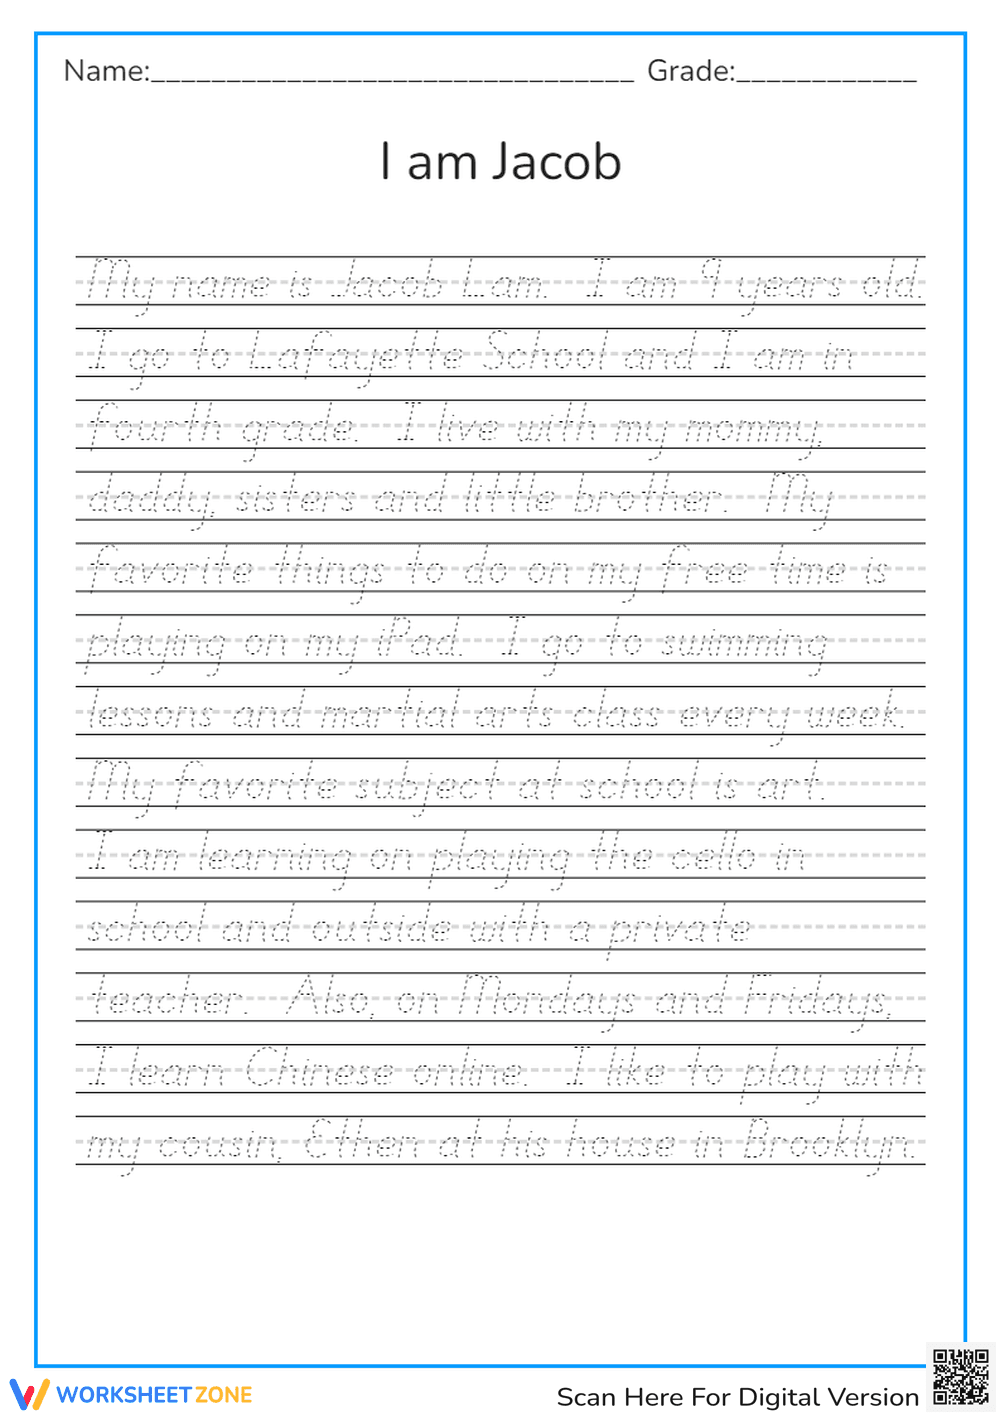 Name:________________________________ Grade:____________
I am Jacob
My name is Jacob Lam. I am 9 years old.
I go to Lafayette School and I am in
fourth grade. I live with my mommy,
daddy, sisters and little brother. My
favorite things to do on my free time is
playing on my iPad. I go to swimming
lessons and martial arts class every week.
My favorite subject at school is art.
I am learning on playing the cello in
school and outside with a private
teacher. Also, on Mondays and Fridays,
I learn Chinese online. I like to play with
my cousin, Ethen at his house in Brooklyn.
WORKSHEETZONE
Scan Here For Digital Version